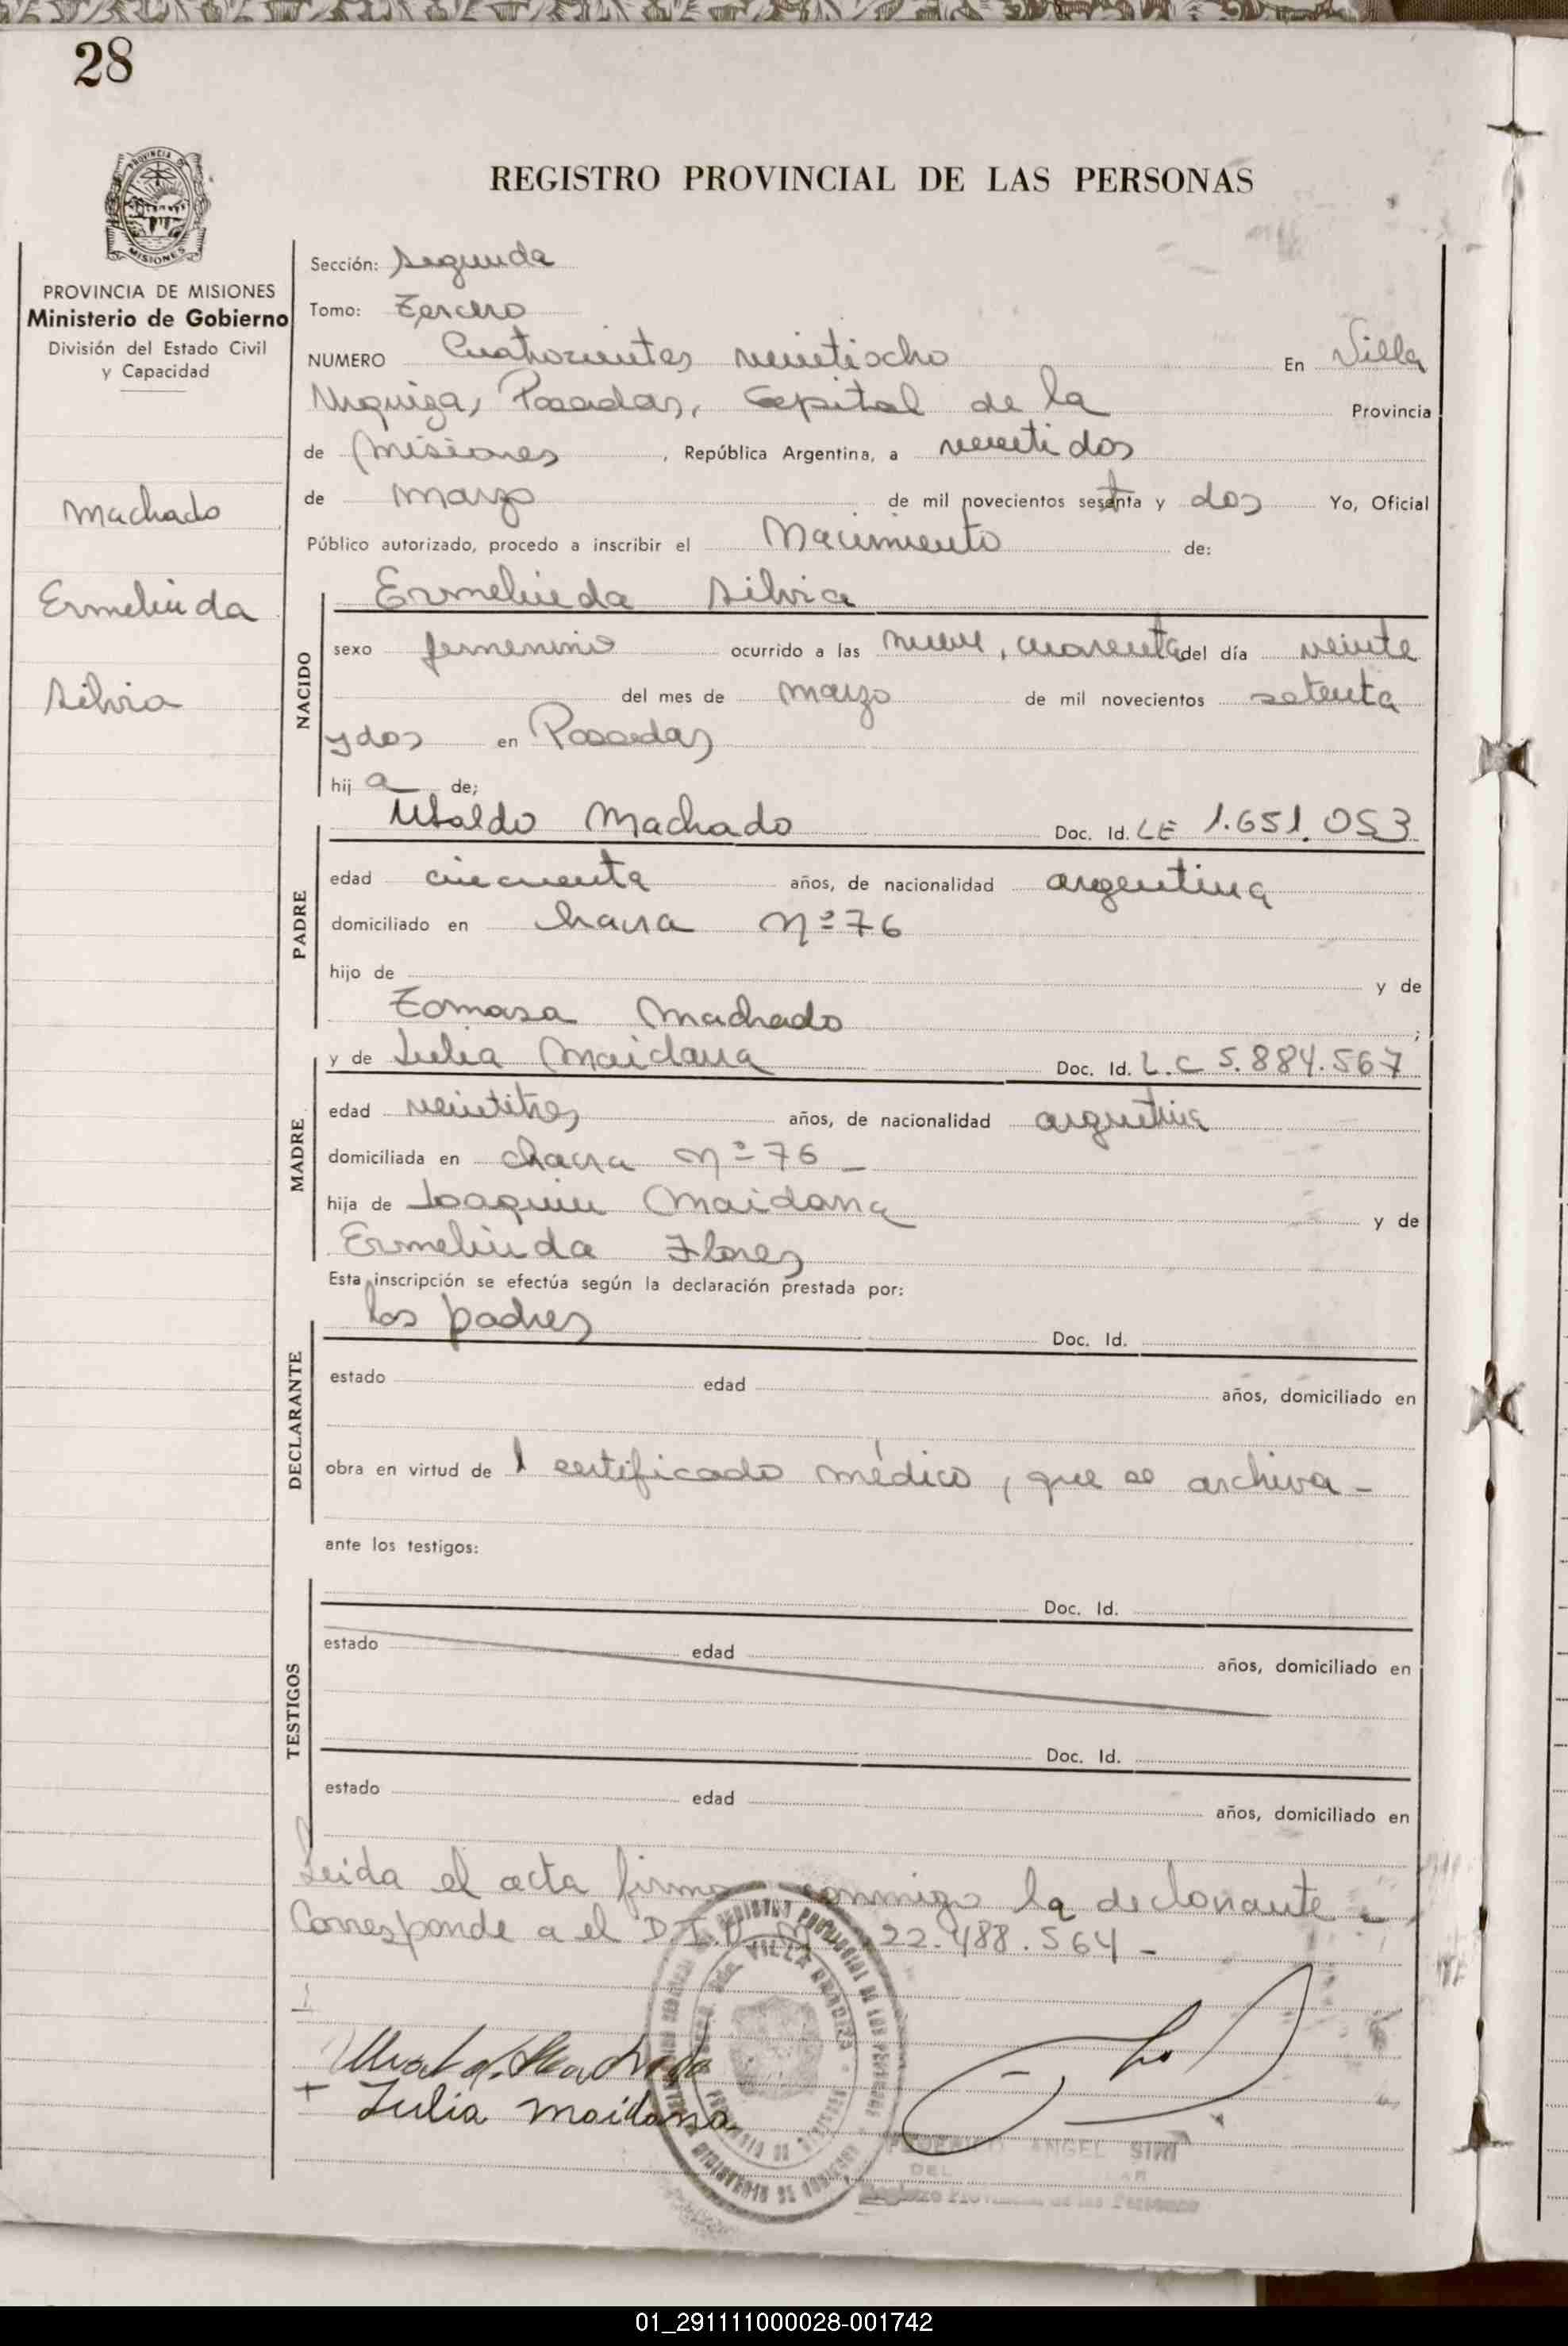 28
PROVINCIA DE
MISIONES
REGISTRO PROVINCIAL DE LAS PERSONAS
PROVINCIA DE MISIONES
Ministerio de Gobierno
División del Estado Civil
y Capacidad
Machado
Ermelinda
Silvia
Sección: Segunda
Tomo: Tercero
NUMERO Cuatrocientos veintiocho En Villa
Urquiza, Posadas, Capital de la Provincia
de Misiones, República Argentina, a veintidos
de marzo de mil novecientos setenta y dos Yo, Oficial
Público autorizado, procedo a inscribir el Nacimiento de:
NACIDO
Ermelinda Silvia
sexo femenino ocurrido a las nueve, cuarenta del día veinte
del mes de marzo de mil novecientos setenta
y dos en Posadas
hij a de;
PADRE
Ubaldo Machado Doc. Id. LE 1.651.053
edad cincuenta años, de nacionalidad argentina
domiciliado en chacra Nº 76
hijo de y de
Tomasa Machado ;
MADRE
y de Julia Maidana Doc. Id. L.C 5.884.567
edad veintitres años, de nacionalidad argentina
domiciliada en chacra Nº 76 -
hija de Joaquin Maidana y de
Ermelinda Flores
Esta inscripción se efectúa según la declaración prestada por:
DECLARANTE
los padres Doc. Id.
estado edad años, domiciliado en
obra en virtud de 1 certificado médico, que se archiva -
ante los testigos:
TESTIGOS
Doc. Id.
estado edad años, domiciliado en
Doc. Id.
estado edad años, domiciliado en
Leida el acta firma conmigo la declarante -
Corresponde a el D.I.U Nº 22.488.564 -
Julia Maidana
REGISTRO PROVINCIAL DE LAS PERSONAS
VILLA URQUIZA
ANGEL
DEL
Registro Provincial de las Personas
01_291111000028-001742